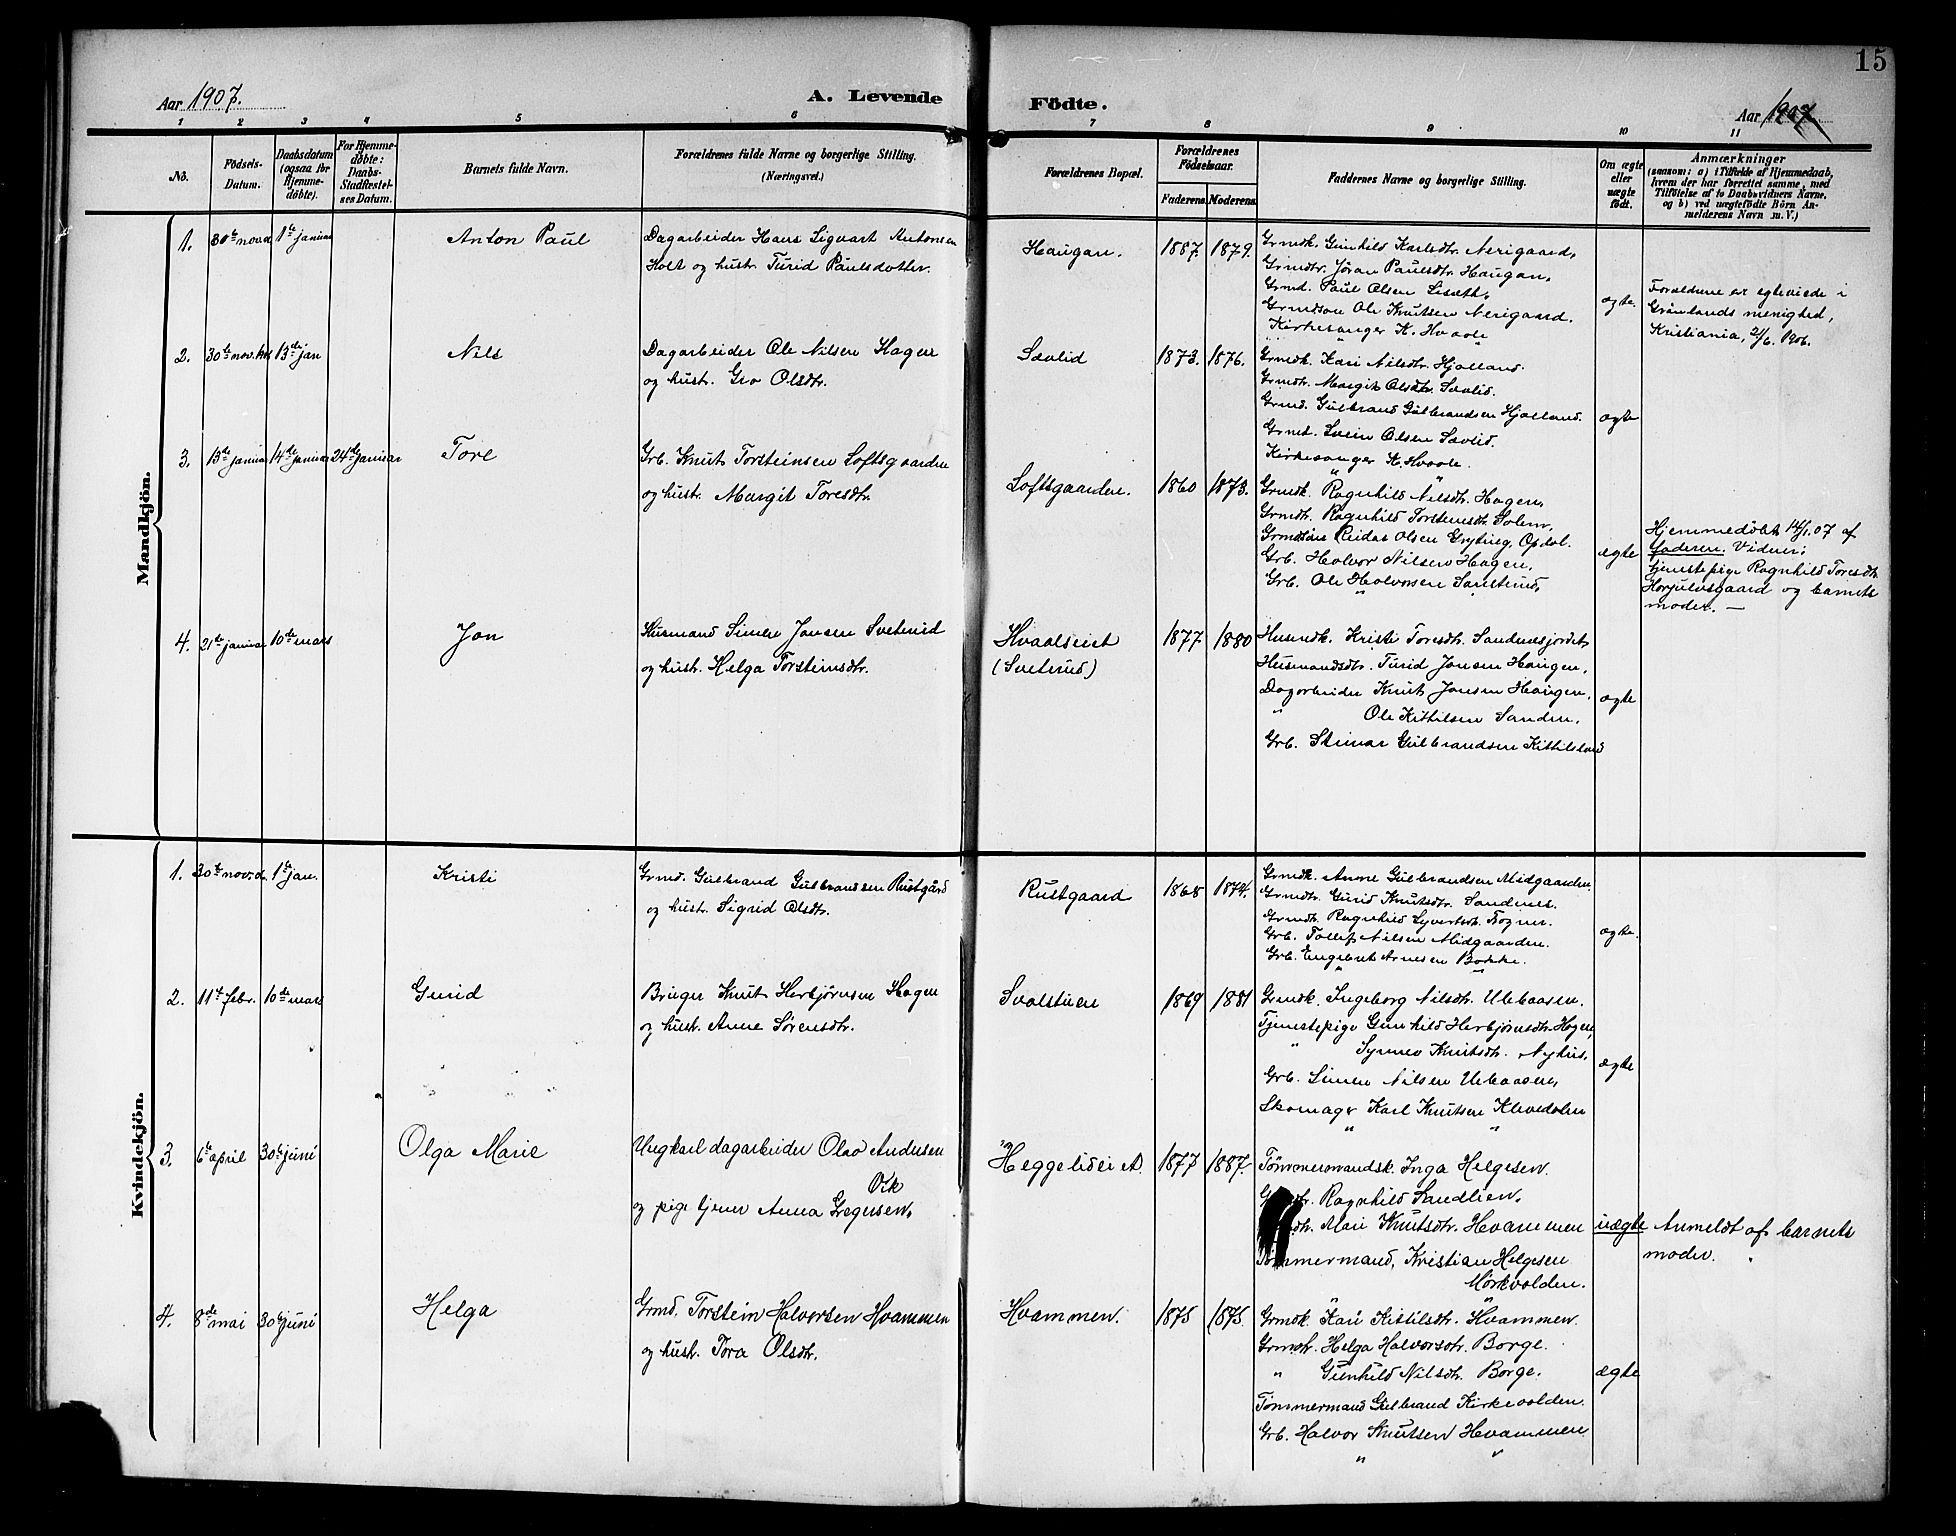 15
Aar 1907.
A. Levende
Födte.
Aar 1907
1 2 3 4 5 6 7 8 9 10 11
No.
Födsels-
Datum.
Daabsdatum
(ogsaa for
Hjemme-
döbte).
For Hjemme-
döbte:
Daabs-
Stadfæstel-
ses Datum.
Barnets fulde Navn.
Forældrenes fulde Navne og borgerlige Stilling.
(Næringsvei.)
Forældrenes Bopæl.
Forældrenes
Födselsaar.
Faderens. Moderens.
Faddernes Navne og borgerlige Stilling.
Om ægte
eller
uægte
födt.
Anmærkninger
(saasom: a) i Tilfælde af Hjemmedaab,
hvem der har forrettet samme, med
Tilföielse af to Daabsvidners Navne,
og b) ved uægtefödte Börn An-
melderens Navn m. V.)
Mandkjön.
1.
30te nov.06
1ste januar
Anton Paul
Dagarbeider Hans Sigvart Antonsen
Holt og hustr. Turid Paulsdotter.
Haugan.
1887. 1879.
Grmdk. Gunhild Karlsdtr. Nerigaard,
Grmdtr. Jöran Paulsdtr. Haugan,
Grmd. Paul Olsen Liseth,
Grmdson Ole Knutsen Nerigaard.
Kirkesanger K. Hvaale
ægte.
Forældrene er egteviede i
Grönlands menighed,
Kristiania, 2/6. 1906.
2.
30te nov.06
13de jan
Nils
Dagarbeider Ole Nilsen Hagen
og hustr. Gro Olsdtr.
Sævlid
1873. 1876.
Grmdk. Kari Nilsdtr. Hjalland.
Grmdtr. Margit Olsdtr. Sævlid.
Grmd. Gulbrand Gulbrandsen Hjalland.
Grmd. Svein Olsen Sævlid.
Kirkesanger K. Hvaale.
ægte
3.
13de januar
14de januar
24de januar
Tore
Grb. Knut Torsteinsen Loftsgaarden
og hustr. Margit Toresdtr.
Loftsgaarden.
1860 1873.
Grmdk. Ragnhild Nilsdtr. Hagen,
Grmdtr. Ragnhild Torsteinsdtr. Solem,
Grmdsön Reidar Olsen Gryting, Opdal.
Grb. Halvor Nilsen Hagen,
Grb. Ole Halvorsen Sanderud,
ægte
Hjemmedöbt 14/1.07 af
faderen. Vidner:
tjenestepige Ragnhild Toresdtr.
Horjulvsgaard og barnets
moder. —
4.
21de januar
10de mars
Jon
Husmand Simen Jonsen Sveterud
og hustr. Helga Torsteinsdtr.
Hvaalseiet
(Sveterud)
1877 1880
Husmdk. Kristi Toresdtr. Sandenesjordet,
Husmandsdtr. Turid Jonsen Haugen,
Dagarbeider Knut Jonsen Haugen,
" Ole Kittilsen Sanden,
Grb. Steinar Gulbrandsen Kittilsland
ægte
Kvindekjön.
1.
30te nov.
1ste jan.
Kristi
Grmd. Gulbrand Gulbrandsen Rustgård
og hustr. Sigrid Olsdtr.
Rustgaard
1868 1874.
Grmdk. Anne Gulbrandsen Midgaarden.
Grmdtr. Gurid Knutsdtr. Sandnes.
Grmdtr. Ragnhild Syvertsdtr. Fogner.
Grb. Tollef Nilsen Midgaarden.
Grb. Engebret Arnesen Bakke.
ægte.
2.
11te febr.
10de mars
Gurid
Bruger Knut Herbjörnsen Hagen
og hustr. Anne Sörensdtr.
Svalstuen
1869 1881
Grmdk. Ingeborg Nilsdtr. Ulbaasen.
Tjenestepige Gunhild Herbjörnsdtr. Hagen,
" Synnev Knutsdtr. Nyhus,
Grb. Simen Nilsen Ulbaasen,
Skomager Karl Knutsen Klevedalen
ægte
3.
6te april
30te juni
Olga Marie
Ungkarl dagarbeider Olav Andersen
Oik
og pige tjener Anna Gregersen,
Heggelidei A.
1877 1887.
Tömmermandsk. Inga Helgesen.
Ragnhild Sandlien,
Mari Knutsdtr. Hvammen
Tömmermand, Kristian Helgesen
Mörkvolden.
uægte
Anmeldt af barnets
moder.
4.
8de mai
30te juni
Helga
Grmd. Torstein Halvorsen Hvammen
og hustr. Tora Olsdtr.
Hvammen.
1875 1875.
Grmdk. Kari Kittilsdtr. Hvammen.
Grmdtr. Helga Halvorsdtr. Borge.
" Gunhild Nilsdtr. Borge.
Tömmermand Gulbrand Kirkevolden.
Grb. Halvor Knutsen Hvammen
" "
ægte